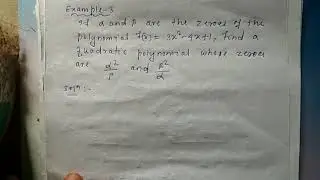 Example-3
If α and β are the zeroes of the
polynomial f(x) = 3x²-4x+1, find a
quadratic polynomial whose zeroes
are α²/β and β²/α
Solⁿ :-